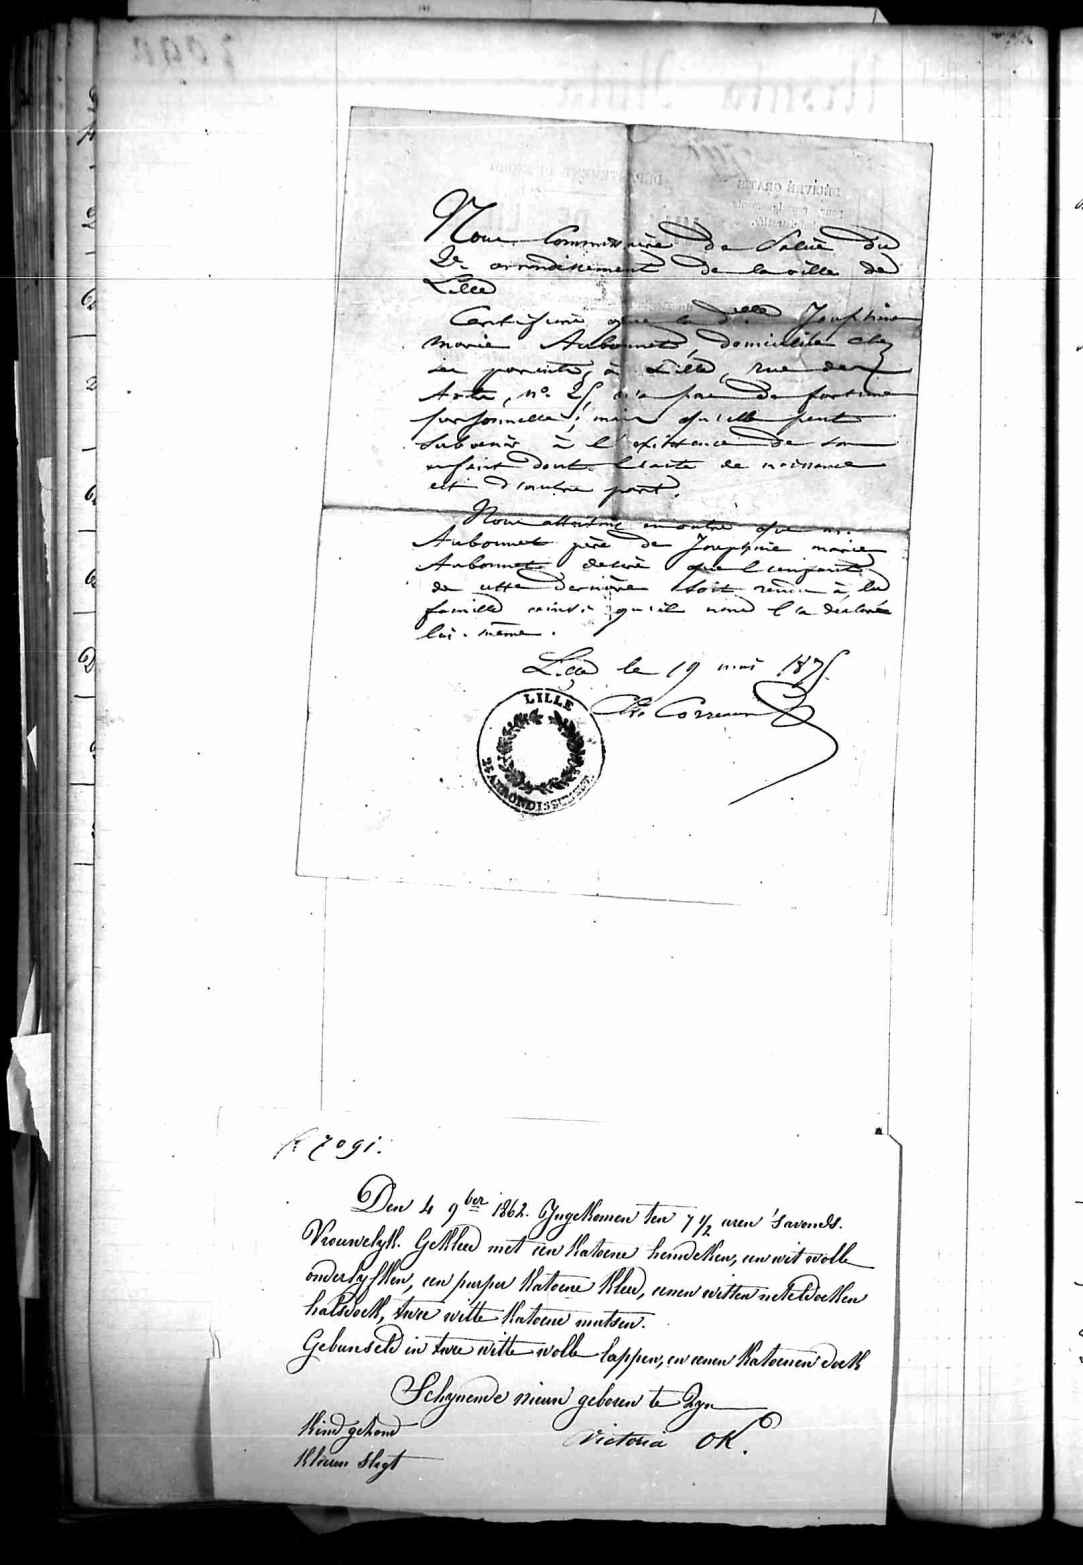 Nous Commissaire de Police du
2e arrondissement de la ville de
Lille
Certifions que la dlle Josephine
Marie Aubonnet, domiciliée chez
ses parents, à Lille, rue des
Arts, no. 25, n'a pas de fortune
personnelle; mais qu'elle peut
subvenir à l'existence de son
enfant dont l'acte de naissance
est d'autre part.
Nous attestons en outre que mr.
Aubonnet père de Josephine marie
Aubonnet desire que l'enfant
de cette dernière soit remis à la
famille ainsi qu'il nous l'a déclaré
lui-même.
Lille le 19 mai 1875
LILLE
2E ARRONDISSEMENT
7091.
Den 4 9ber 1862. Ingekomen ten 7 1/2 uren 's avonds.
Vrouwelyk. Gekleed met een katoene hemdeken, een wit wolle
onderlyfken, een purper katoene kleed, eenen witten neteldoeken
halsdoek, twee witte katoene mutsen.
Gebunseld in twee witte wolle lappen, en eenen katoenen doek
Schynende nieuw geboren te Zyn
Kind gezond
Victoria OK.
Kleeren slegt